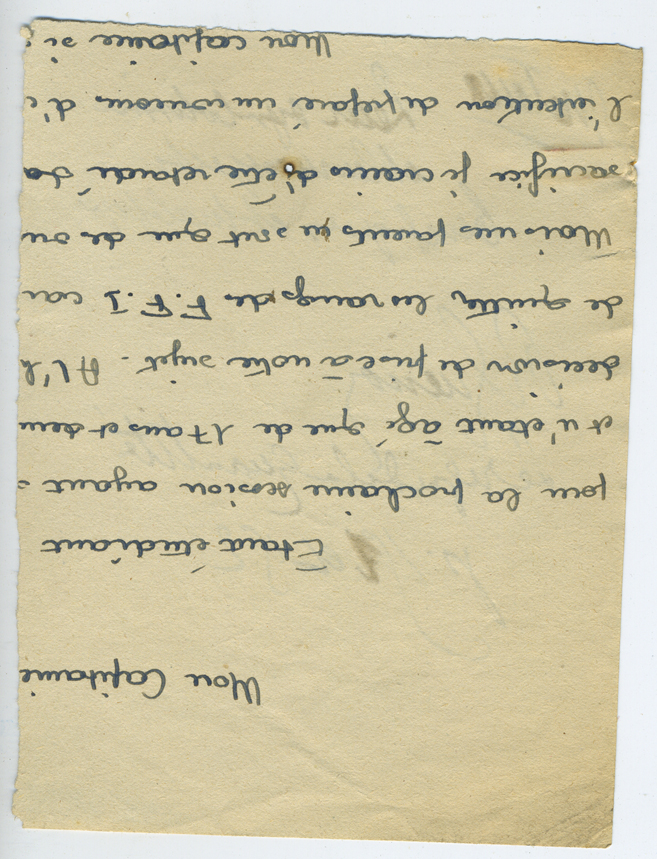 Mon Capitaine
Etant étudiant
pour la prochaine session ayant
et n'etant âgé que de 17 ans et dem
decision de prise a notre sujet. A l'h
de quitter les rangs de F.F.I car
Mais mes parents ne sont que de
sacrifice je crains d'être retardé
l'intention de préparé un concours d'
Mon capitaine si